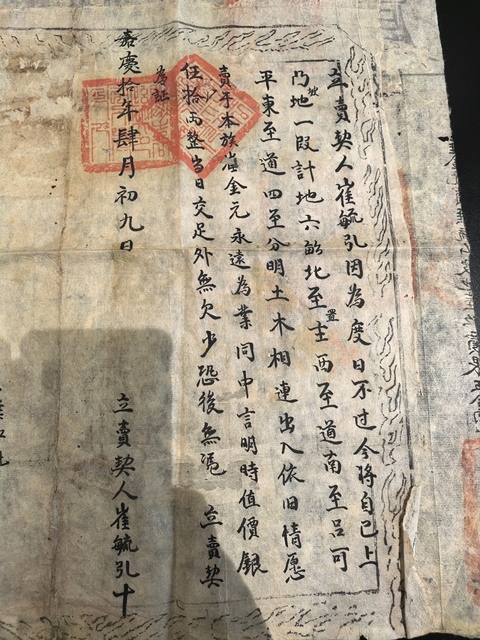 立賣契人崔毓弘因為度日不过今將自己上
地一段計地六畝北至置主西至道南至吕可
平東至道四至分明土木相連出入依旧情愿
賣于本族崔金元永遠為業同中言明時值價銀
伍拾両整当日交足外無欠少恐後無憑 立賣契
為証
嘉慶拾年肆月初九日 立賣契人崔毓弘十